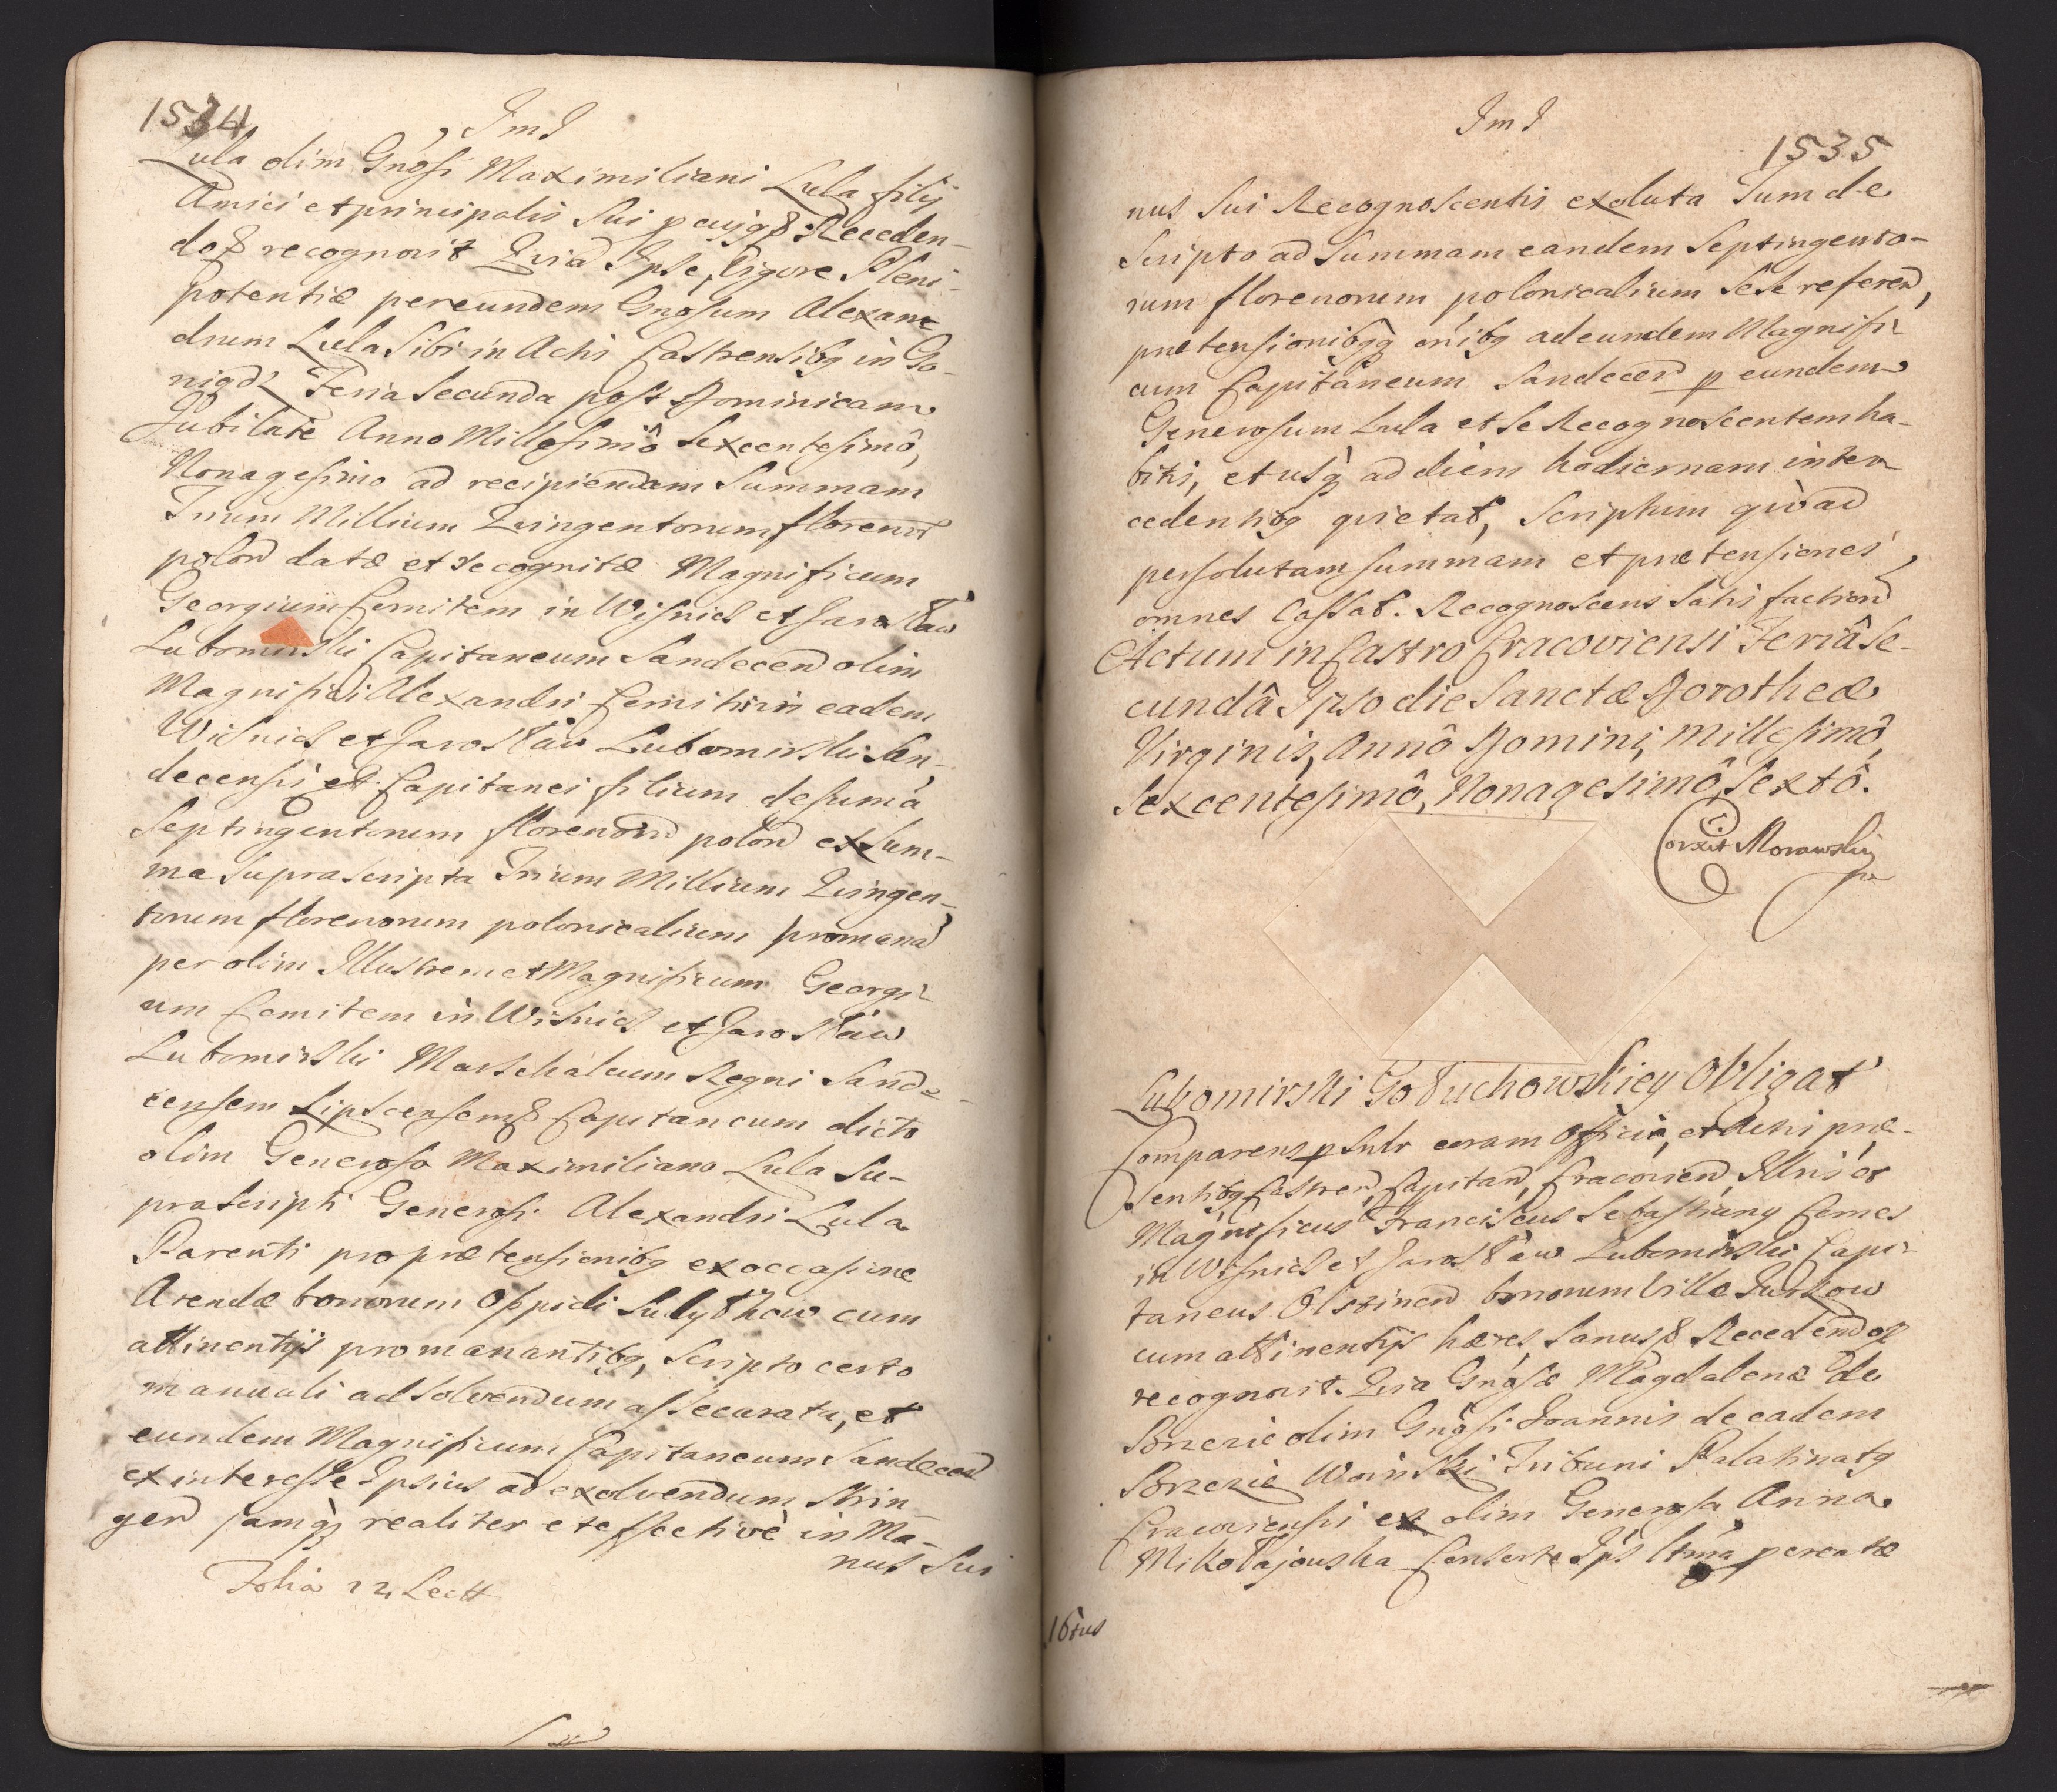 1534
ImI
Lula olim Gnosi Maximiliani Lula filij
Amici et principalis sui p cujq Receden-
doq recognovit Quia Ipse, Vigore Pleni-
potentiæ per eundem Gnosum Alexan-
drum Lula Sibi in Actis Castrensibq in Go-
Feria Secunda post Dominicam
Jubilate Anno Millesimô Sexcentesimô,
Nonagesimo ad recipiendam Summam
Trium Millium Quingentorum floren
polon datæ et recognitæ Magnificum
Georgium Comitem in Wisnicz et Jarosław
Lubomirski Capitaneum Sandecen olim
Magnifici Alexandri Comitis in eadem
Wisnicz et Jarosław Lubomirski San-
decensis et Capitanei filium de suma
Septingentorum florenorum polon ex Sum-
ma Suprascripta Trium Millium Quingen-
torum florenorum polonicalium promana
per olim Illustrem et Magnificum Georgi-
um Comitem in Wisnicz et Jarosław
Lubomirski Marschalcum Regni Sande-
censem Lipscensemq Capitaneum dicto
olim Generoso Maximiliano Lula Su-
prascripti Generosi Alexandri Lula
Parenti pro prætensionibq ex occasione
Arendæ bonorum Oppidi SulyThow cum
attinentijs promanantibq, Scripto certo
manuali ad solvendum assecurata, et
eundem Magnificum Capitaneum Sandecen
ex interesse Ipsius ad exolvendum Strin
gen jamqz realiter et effective in Ma-
nus Sui
Folia 22 Lectt
ImI
1535
nus Sui Recognoscentis exoluta Tum de
Scripto ad Summam eandem Septingento-
rum florenorum polonicalium Sese referen,
prætensionibqq onibq ad eundem Magnifi-
cum Capitaneum Sandecen p eundem
Generosum Lula et Se Recognoscentem ha-
bitis, et usq ad diem hodiernam inter-
cedentibq quietat, Scriptum quoad
persolutam summam et prætensiones
omnes Cassat. Recognoscens Satisfaction
Actum in Castro Cracoviensi Feriâ Se-
cundâ Ipso die Sanctæ Dorotheæ
Virginis, Annô Domini, Millesimô,
Sexcentesimô, Nonagesimô Sextô.
Corxit Morawski
Lubomirski Gołuchowskiey Obligat
Comparens pSntr coram Officio, et Actis præ-
sentibq Castren, Capitan, Cracovien, Illris et
Magnificus Franciscus Sebastianq Comes
in Wisnicz et Jarosław Lubomirski Capi-
taneus Olstinen bonorum Villæ Jurkow
cum attinentijs hæres, Sanusq Recedendoq
recognovit. Quia Gnosæ Magdalenæ de
Brzezie olim Gnosi Joannis de eadem
Brzezie Woinski Tribuni Palatinatq
Cracoviensis ex olim Generosa Anna
Mikołajouska Consorte Ips ltima procreatæ
16tus